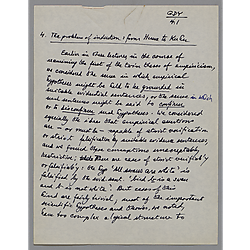 4.1
4. The problem of induction: from Hume to
Earlier in these lectures in the course of
examining the fact of the twin theses of Empiricism,
we considered the sense in which empirical
hypotheses might be held to be grounded in
suitable evidential sentences, or the sense in which
such sentences might be said to confirm
or to disconfirm such hypotheses. We considered
especially the idea that empirical assertions
are – or must be – capable of strict verification
or strict falsification by suitable evidence sentences,
and we found these conceptions unacceptably
restrictive. There are cases of strict verifiability
or falsifiability; the hyp. 'All swans are white' is
falsified by the evident. 'bird b is a swan
and b is not white'. But cases of this
kind are fairly trivial; most of the important
scientific hypotheses and theories are
far too complex a logical structure to